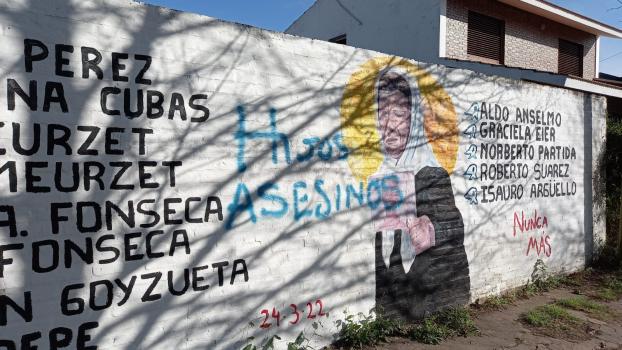 PEREZ
NA CUBAS
EURZET
MEURZET
A. FONSECA
FONSECA
N GOYZUETA
PEPE
Hijos
ASESINOS
24.3.22.
ALDO ANSELMO
GRACIELA EIER
NORBERTO PARTIDA
ROBERTO SUAREZ
ISAURO ARGÜELLO
NUNCA
MÁS